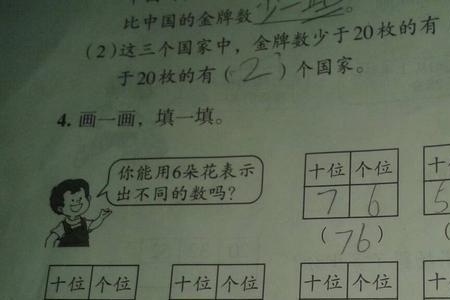 比中国的金牌数少一些。
(2)这三个国家中，金牌数少于20枚的有
于20枚的有(2)个国家。
4. 画一画，填一填。
你能用6朵花表示
出不同的数吗?
十位 个位
7 6
(76)
十
5
(
十位 个位 十位 个位 十位 个位 十位